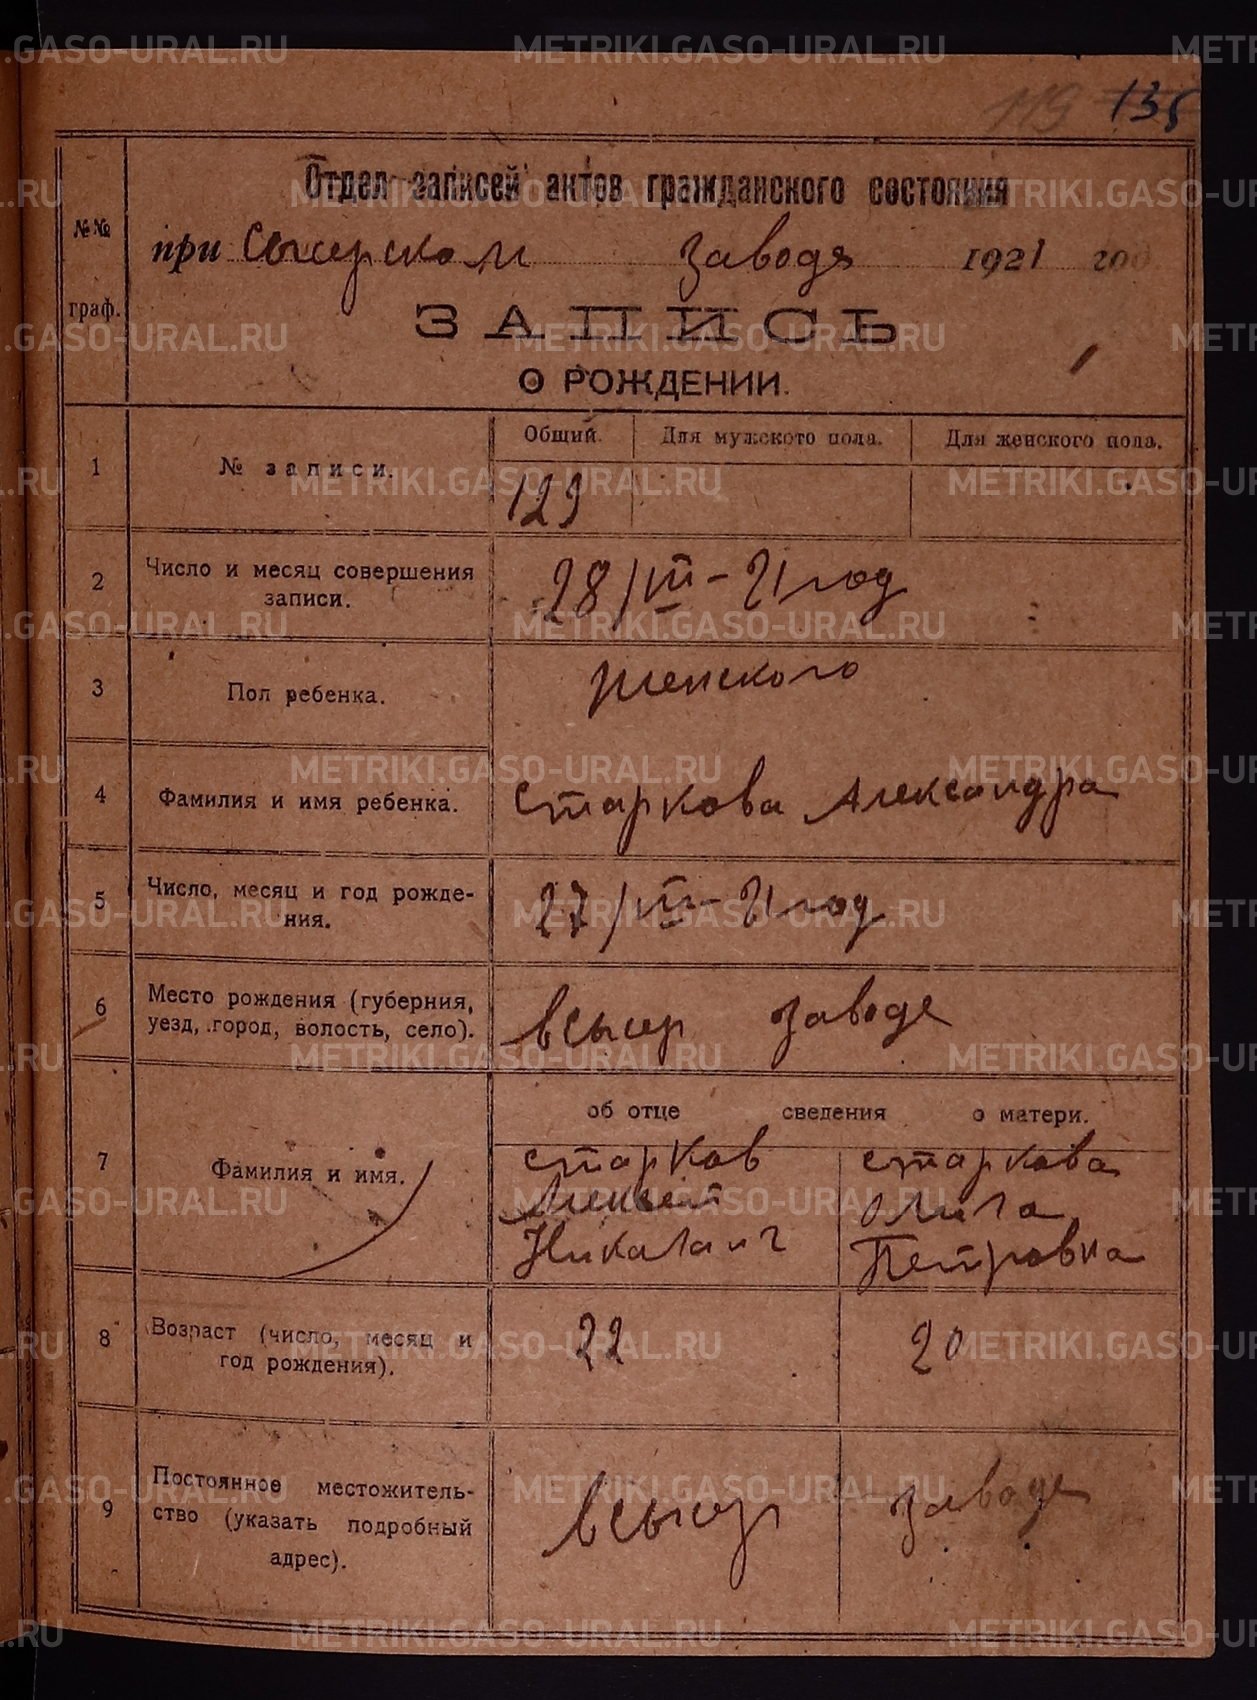 119 135
Отдел записей актов гражданского состояния
№№ граф.
при Сысерском заводе 1921 год
ЗАПИСЬ
О РОЖДЕНИИ.
1 № записи. Общий. Для мужского пола. Для женского пола.
129
2 Число и месяц совершения
записи.
28/III-21 год
3 Пол ребенка.
женского
4 Фамилия и имя ребенка.
старкова Александра
5 Число, месяц и год рожде-
ния.
27/III-21 год
6 Место рождения (губерния,
уезд, город, волость, село).
в Сысер заводе
об отце сведения о матери.
7 Фамилия и имя.
старков старкова
Алексей
Николаич Петровна
8 Возраст (число, месяц и
год рождения).
22 20
9 Постоянное местожитель-
ство (указать подробный
адрес).
в Сысер заводе
METRIKI.GASO-URAL.RU